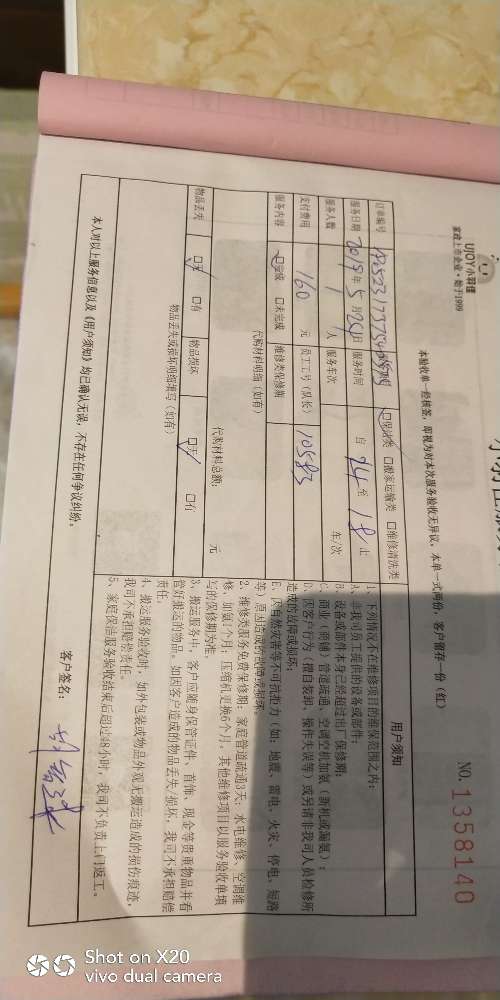 UJOY小羽佳
家政上市企业·始于1999
NO. 1358140
本验收单一经核签，即视为对本次服务验收无异议，本单一式两份，客户留存一份（红）
订单编号
☑保洁类 □搬家运输类 □维修清洗类
服务日期 2019年5月04日 服务时间 自 14 至 18 止
服务人数 1 人 服务车次 车/次
支付费用 160 元 员工工号（队长） 10583
服务内容 ☑完成 □未完成 维修类保修期
代购材料明细（如有）
代购材料总额： 元
物品丢失 ☑无 □有 物品损坏 ☑无 □有
物品丢失或损坏明细填写（如有）
用户须知
1、下列情况不在维修项目的维保范围之内：
A、非我司员工提供的设备或部件；
B、设备或部件本身已经超过出厂保修期；
C、商业（商铺）管道疏通、空调空机加氨（新机或漏氨）；
D、因客户行为（擅自装卸、操作失误等）或另请非我司人员检修所
造成的故障或损坏；
E、因自然灾害等不可抗拒力（如：地震、雷电、火灾、停电、短路
等）原因造成的故障或损坏。
2、维修类服务免费保修期：家庭管道疏通3天，水电维修、空调维
修、加氨1个月，压缩机更换6个月，其他维修项目以服务验收单填
写的保修期为准。
3、搬运服务中，客户应随身保管证件、首饰、现金等贵重物品并看
管好搬运的物品。如因客户造成的物品丢失/损坏，我司不承担赔偿
责任。
4、搬运服务验收时，如外包装或物品外观无搬运造成的损伤痕迹，
我司不承担赔偿责任。
5、家庭保洁服务验收结束后超过48小时，我司不负责上门返工。
本人对以上服务信息以及《用户须知》均已确认无误，不存在任何争议纠纷。
客户签名：
Shot on X20
vivo dual camera